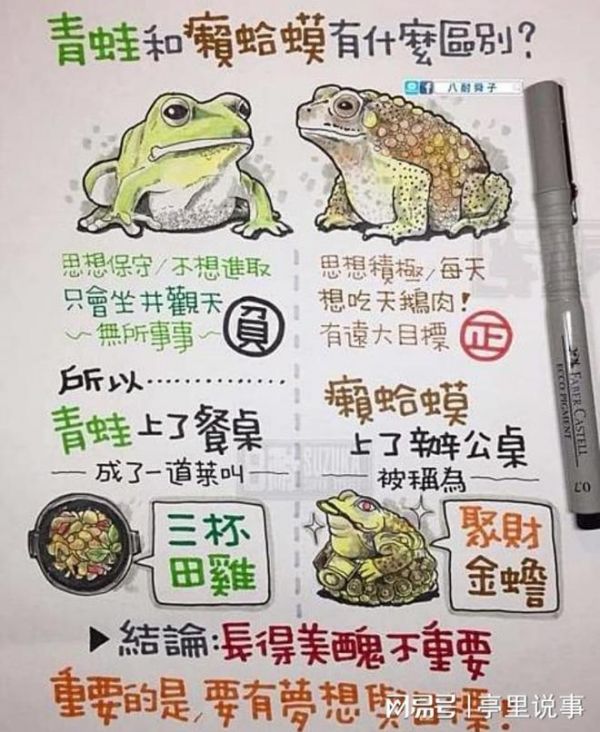 青蛙和癩蛤蟆有什麼區別?
八耐舜子
思想保守/不想進取
只會坐井觀天
~無所事事~
負
思想積極/每天
想吃天鵝肉!
有遠大目標
正
所以............
青蛙上了餐桌
—成了一道菜叫—
三杯
田雞
癩蛤蟆
上了辦公桌
—被稱為—
聚財
金蟾
FABER-CASTELL
ECCO PIGMENT
0.7
▶結論:長得美醜不重要
重要的是,要有夢想與目標!
网易号 | 亭里说事